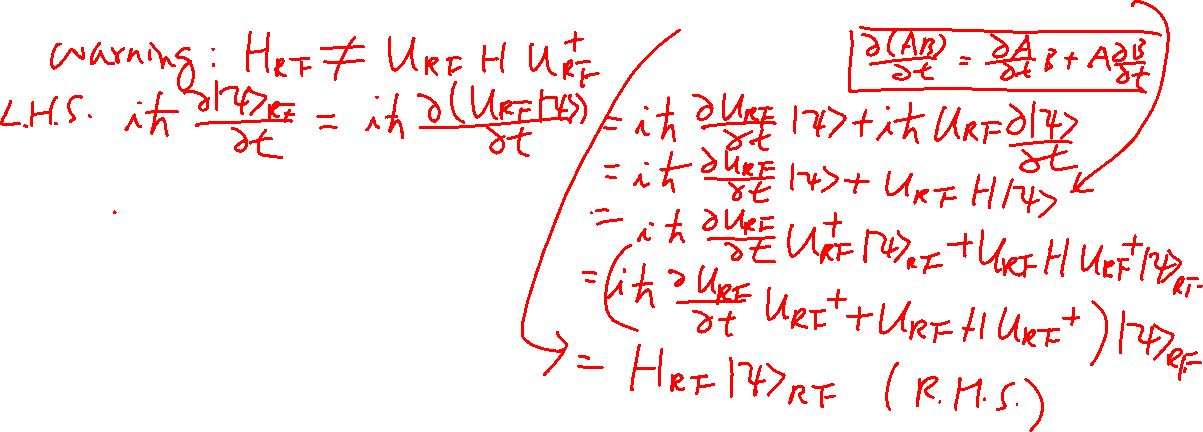 warning: H_RF ≠ U_RF H U_RF^+
∂(AB)/∂t = ∂A/∂t B + A ∂B/∂t
L.H.S. iħ ∂|ψ>_RF/∂t = iħ ∂(U_RF|ψ>)/∂t = iħ ∂U_RF/∂t |ψ> + iħ U_RF ∂|ψ>/∂t
= iħ ∂U_RF/∂t |ψ> + U_RF H|ψ>
= iħ ∂U_RF/∂t U_RF^+ |ψ>_RF + U_RF H U_RF^+ |ψ>_RF
= (iħ ∂U_RF/∂t U_RF^+ + U_RF H U_RF^+) |ψ>_RF
= H_RF |ψ>_RF (R.H.S.)